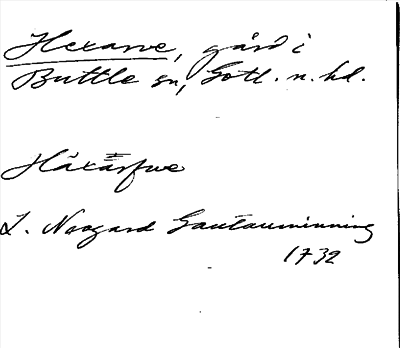 Hexarve, gård i
Buttle sn, Gotl. n. hd.
Häxärfwe
L. Noogard Gautauminning
1732